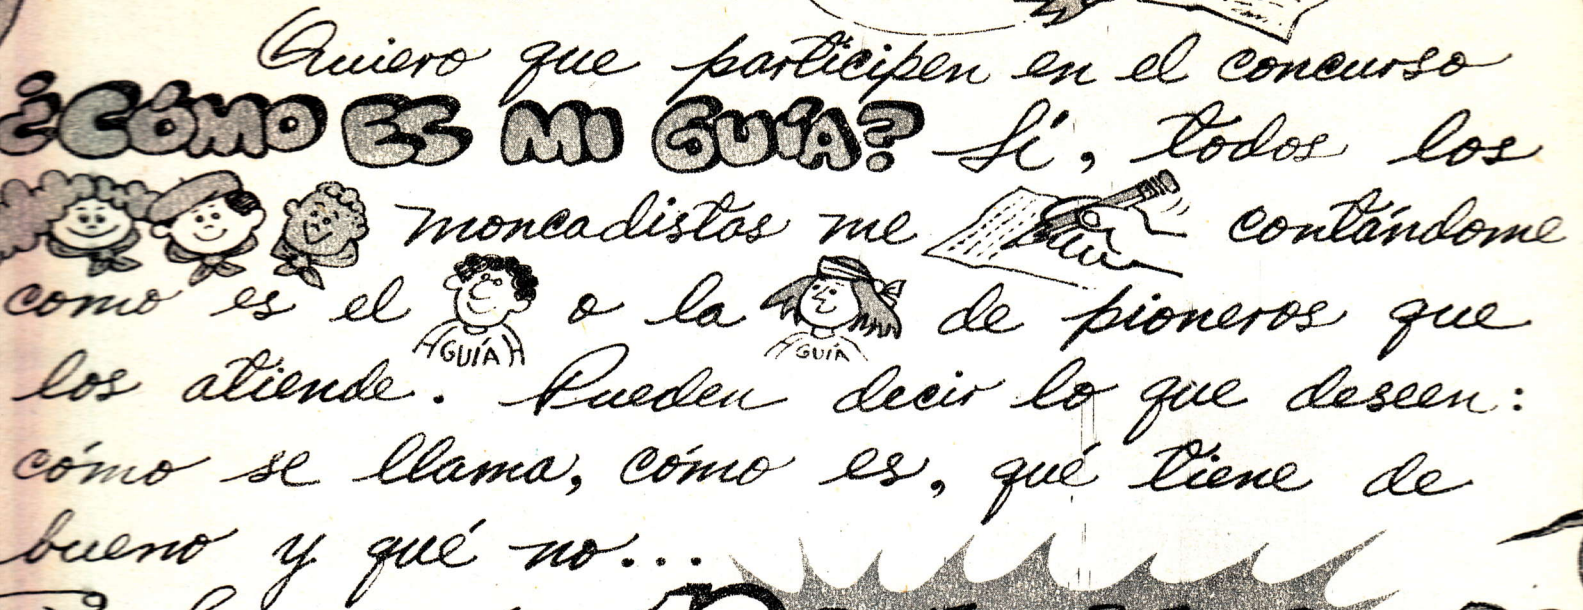 Quiero que participen en el concurso
¿CÓMO ES MI GUÍA? Sí, todos los
moncadistas me contándome
como es el GUÍA o la GUIA de pioneros que
los atiende. Pueden decir lo que deseen:
cómo se llama, cómo es, qué tiene de
bueno y qué no...